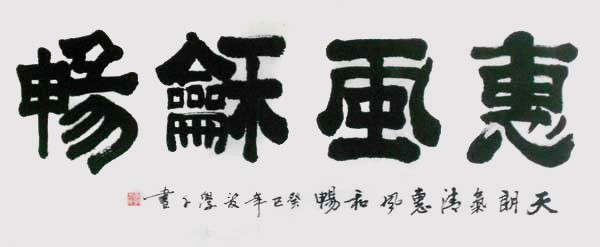 惠風龢暢
天朗氣清惠風和暢癸巳年學書